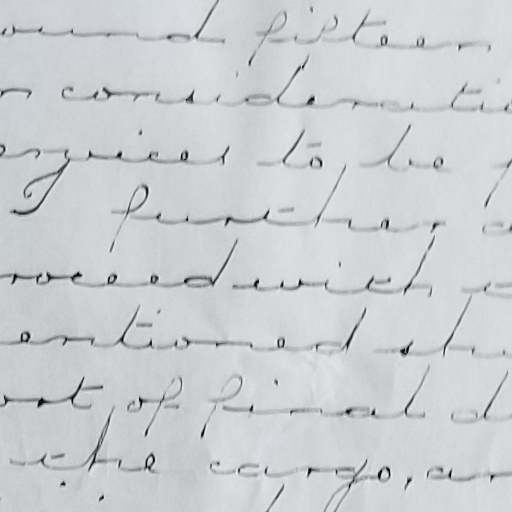 ound fifteen
n consideratio
ervices to be p
I further a
roceed with t
entioned sh
ort of final d
the cargo, an